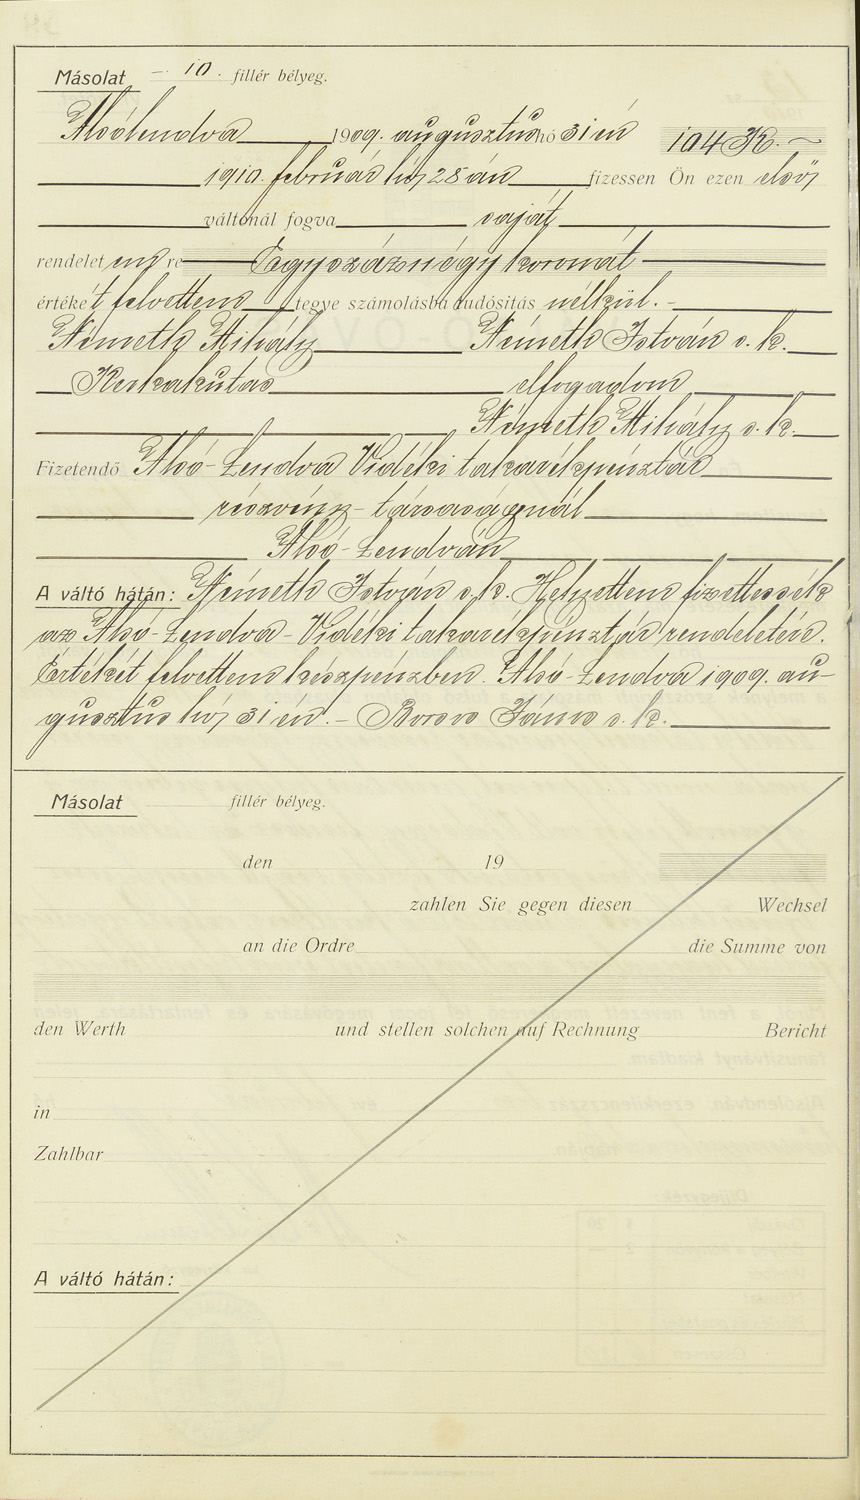 Másolat — 10. fillér bélyeg.
Alsólendva 1909. augusztus hó 31 én 104 K. —
1910. február hó 28 án fizessen Ön ezen első
váltónál fogva saját
rendeletem re Egyszáznégy koronát
értékét felvettem tegye számolásba tudósitás nélkül. —
Németh Mihály Németh István s. k.
Kerkakutas elfogadom
Németh Mihály s. k.
Fizetendő Alsó-Lendva Vidéki takarékpénztár
részvény-társaságnál
Alsó-Lendván
A váltó hátán: Németh István s. k. Helyettem fizettessék
az Alsó-Lendva-Vidéki takarékpénztár rendeletére.
Értékét felvettem készpénzben. Alsó-Lendva 1909. au-
gusztus hó 31 én. — János s. k.
Másolat fillér bélyeg.
den 19
zahlen Sie gegen diesen Wechsel
an die Ordre die Summe von
den Werth und stellen solchen auf Rechnung Bericht
in
Zahlbar
A váltó hátán: